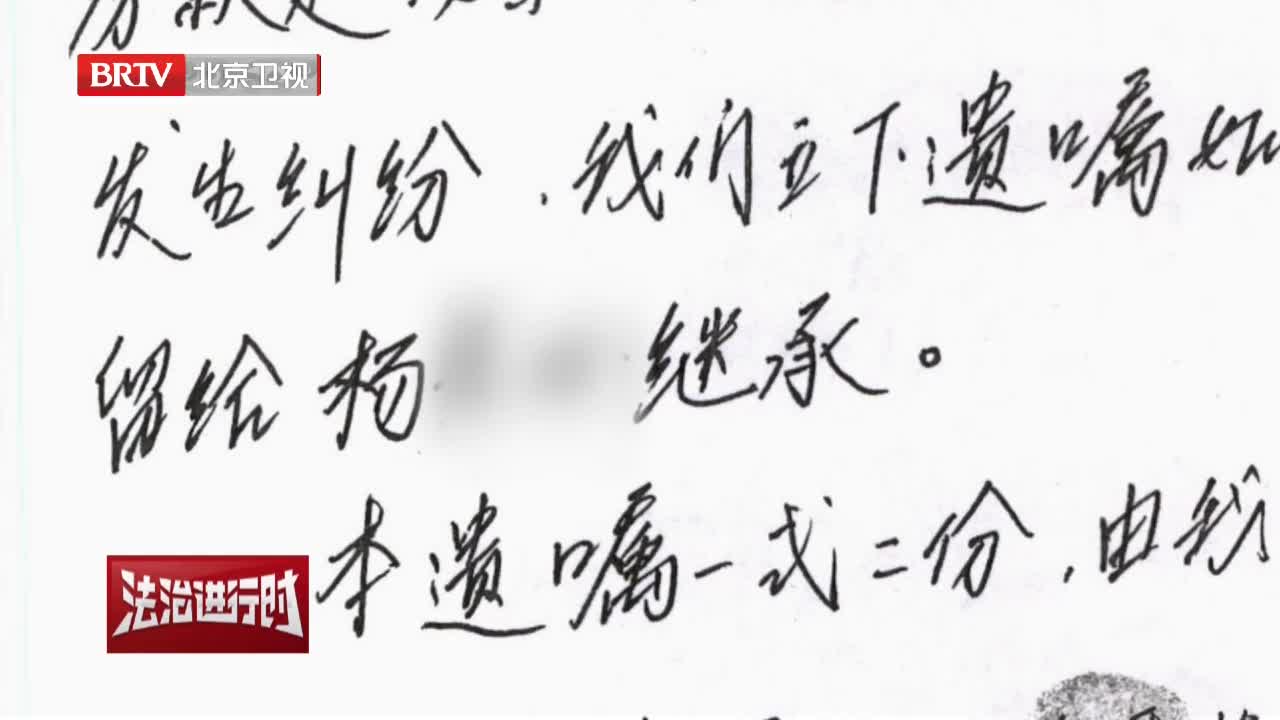 BRTV 北京卫视
发生纠纷，我们立下遗嘱如
留给杨
继承。
本遗嘱一式二份，由我
法治进行时